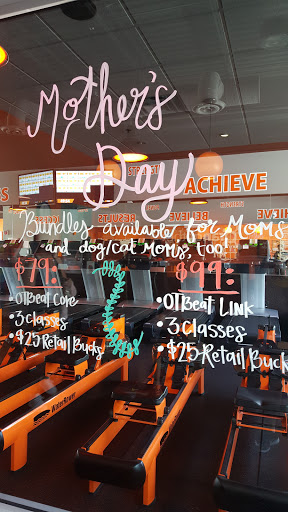 Mother's
Day
ACHIEVE
RESULTS
BELIEVE
Bundles available for Moms
and dog/cat Moms, too!
$79:
• OTBeat Core
• 3 classes
• $25 Retail Bucks
$99:
• OTBeat Link
• 3 Classes
• $25 Retail Buck
WaterRower